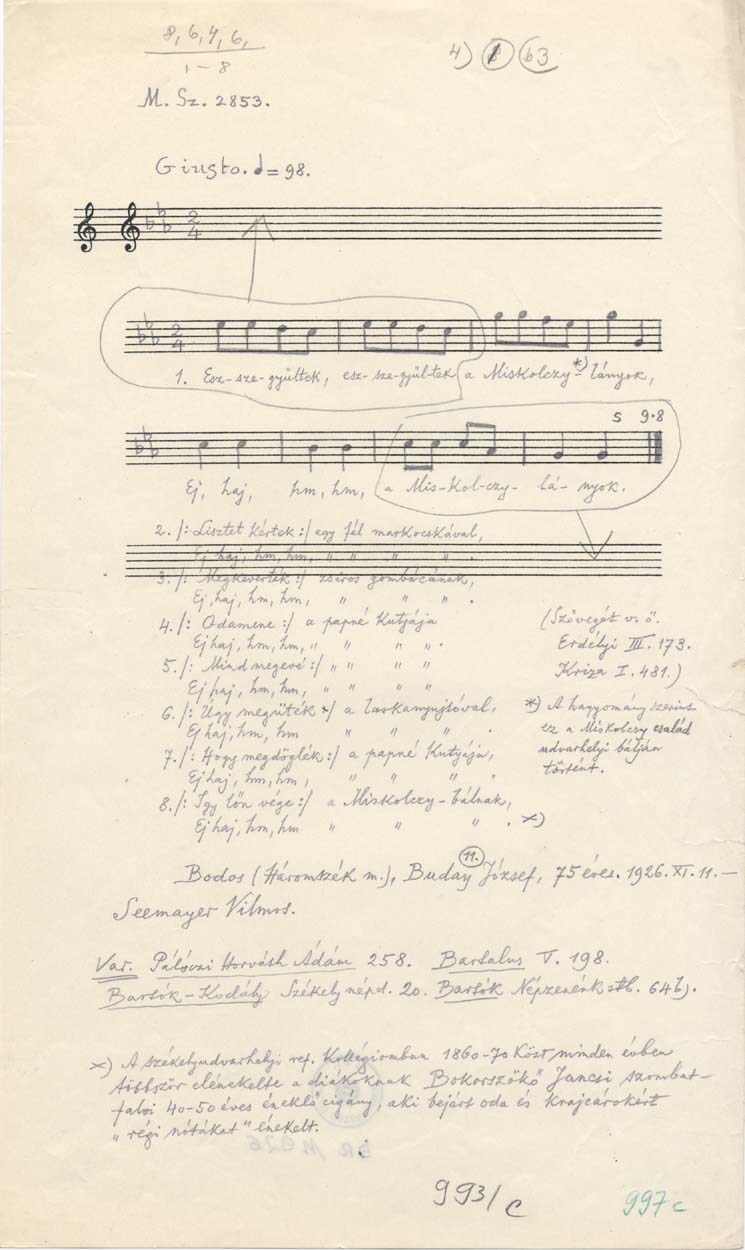 8, 6, 4, 6,
1-8
4) 8 63
M. Sz. 2853.
Giusto. = 98.
2 4
2 4
1. Esz-sze-gyültek, esz-sze-gyül-tek a Miskolczy *)- lányok,
S 9·8
Ej, haj, hm, hm, a Mis-kol-czy- lá- nyok.
2. /: Lisztet kértek :/ egy fél markocskával,
Ej haj, hm, hm, " " " " .
3. /: Megkeverték :/ zsiros gombócának,
Ej, haj, hm, hm, " " " .
4. /: Odamene :/ a papné Kutjája
Ej haj, hm, hm, " " " " .
5. /: Mind megevé :/ " " " "
Ej haj, hm, hm, " " " "
6. /: Ugy megüték :/ a laskanyujtóval,
Ej haj, hm, hm " " " .
7. /: Hogy megdöglék :/ a papné Kutyája,
Ej haj, hm, hm, " " " "
8. /: Igy lőn vége :/ a Miskolczy-bálnak,
Ej haj, hm, hm " " " . ×)
(Szövegét v. ö.
Erdélyi III. 173.
Kriza I. 481.)
*) A hagyomány szerint
ez a Miskolczy család
udvarhelyi bálján
történt.
Bodos (Háromszék m.), Buday 11. József, 75 éves. 1926. XI. 11. —
Seemayer Vilmos.
Var. Pálóczi Horváth Ádám 258. Bartalus V. 198.
Bartók-Kodály Székely népd. 20. Bartók Népzenénk stb. 64 b).
×) A székelyudvarhelyi ref. Kollégiomban 1860-70 Közt minden évben
többször elénekelte a diákoknak Bokorszökő Jancsi szombat-
falvi 40-50 éves éneklő cigány, aki bejárt oda és Krajcárokért
"régi nótákat" énekelt.
993/c
997 c